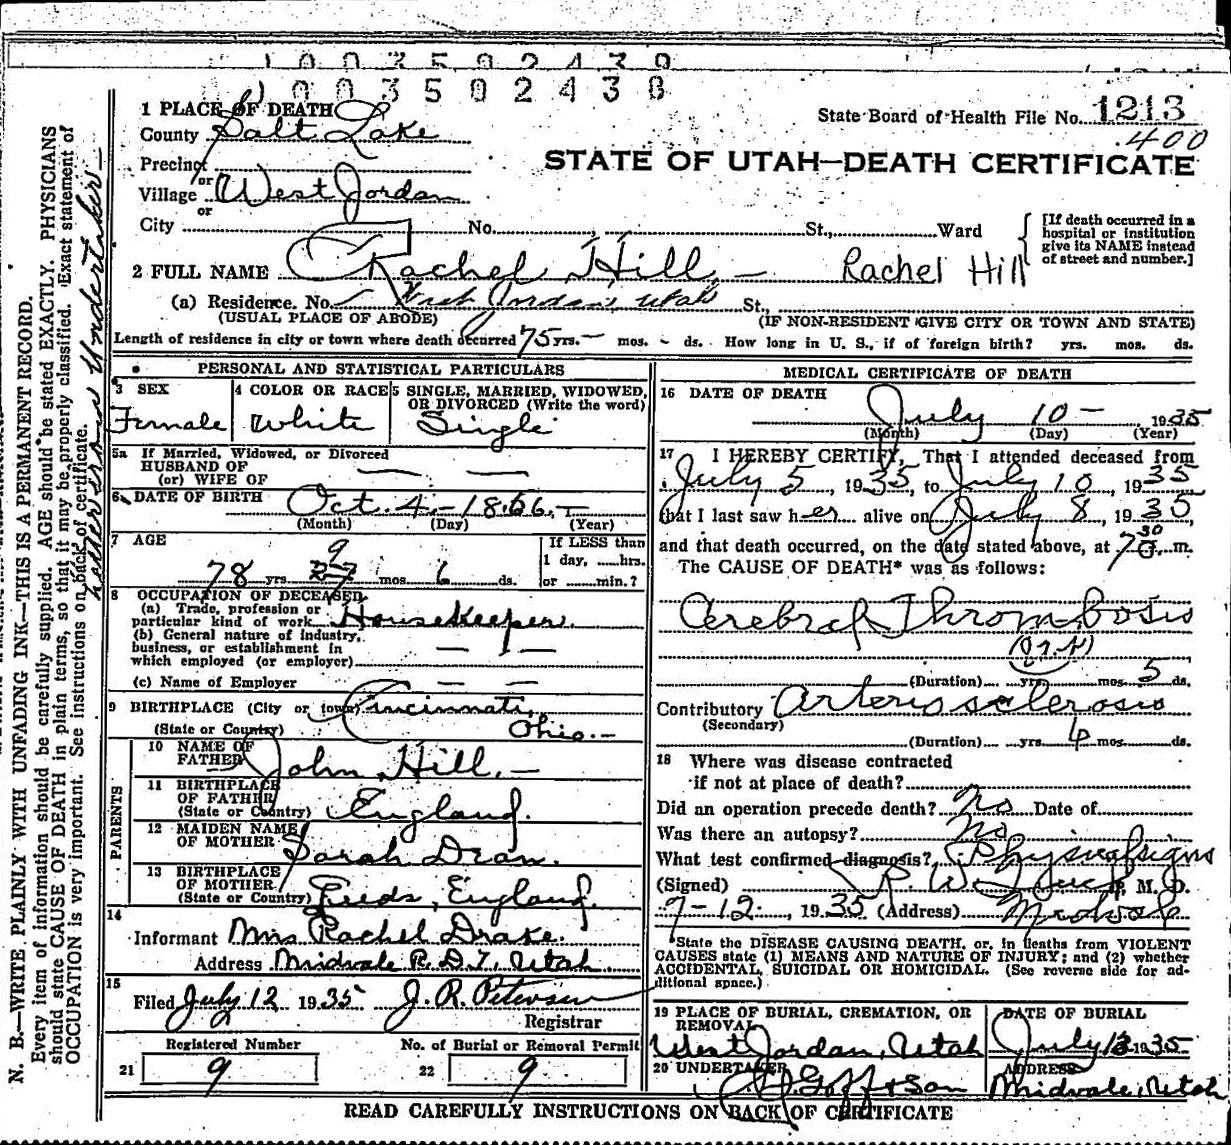 0 0 3 5 0 2 4 3 8
1 PLACE OF DEATH
State Board of Health File No. 1213
400
County Salt Lake
STATE OF UTAH—DEATH CERTIFICATE
Precinct
or
Village West Jordan
or
City No. St., Ward
[If death occurred in a
hospital or institution
give its NAME instead
of street and number.]
2 FULL NAME Rachel Hill. — Rachel Hill
(a) Residence. No. West Jordan, Utah St.,
(USUAL PLACE OF ABODE) (IF NON-RESIDENT GIVE CITY OR TOWN AND STATE)
Length of residence in city or town where death occurred 75 yrs. — mos. - ds. How long in U. S., if of foreign birth? yrs. mos. ds.
PERSONAL AND STATISTICAL PARTICULARS
3 SEX
Female
4 COLOR OR RACE
White
5 SINGLE, MARRIED, WIDOWED,
OR DIVORCED (Write the word)
Single
5a If Married, Widowed, or Divorced
HUSBAND OF
(or) WIFE OF — —
6 DATE OF BIRTH Oct. 4 - 1866. —
(Month) (Day) (Year)
7 AGE
If LESS than
1 day, ......hrs.
or ......min.?
9
78 yrs. mos. 6 ds.
8 OCCUPATION OF DECEASED
(a) Trade, profession or
particular kind of work Housekeeper.
(b) General nature of industry,
business, or establishment in
which employed (or employer)
(c) Name of Employer — —
9 BIRTHPLACE (City or town) Cincinnati,
(State or Country) Ohio. —
PARENTS
10 NAME OF
FATHER John Hill, —
11 BIRTHPLACE
OF FATHER
(State or Country) England.
12 MAIDEN NAME
OF MOTHER Sarah Dean.
13 BIRTHPLACE
OF MOTHER
(State or Country) Leeds, England.
14
Informant Mrs Rachel Drake.
Address Midvale R. D. 7, Utah
15
Filed July 12 1935 J. R. Peterson
Registrar
Registered Number No. of Burial or Removal Permit
21 9 22 9
MEDICAL CERTIFICATE OF DEATH
16 DATE OF DEATH
July 10 - 1935
(Month) (Day) (Year)
17 I HEREBY CERTIFY, That I attended deceased from
July 5, 1935, to July 10, 1935
that I last saw her alive on July 8, 1935
and that death occurred, on the date stated above, at 7 30 .m.
The CAUSE OF DEATH* was as follows:
Cerebral Thrombosis
(Duration) yrs. mos. 5 ds.
Contributory Arteriosclerosis
(Secondary)
(Duration) yrs. mos. ds.
18 Where was disease contracted
if not at place of death?
Did an operation precede death? No Date of
Was there an autopsy? No
What test confirmed diagnosis? Physical signs
(Signed) M. D.
7-12, 1935 (Address) Midvale
*State the DISEASE CAUSING DEATH, or, in deaths from VIOLENT
CAUSES state (1) MEANS AND NATURE OF INJURY; and (2) whether
ACCIDENTAL, SUICIDAL OR HOMICIDAL. (See reverse side for ad-
ditional space.)
19 PLACE OF BURIAL, CREMATION, OR
REMOVAL
West Jordan, Utah
DATE OF BURIAL
July 13 1935
20 UNDERTAKER
Goff & Son
ADDRESS
Midvale, Utah
READ CAREFULLY INSTRUCTIONS ON BACK OF CERTIFICATE
N. B.—WRITE PLAINLY WITH UNFADING INK—THIS IS A PERMANENT RECORD.
Every item of information should be carefully supplied. AGE should be stated EXACTLY. PHYSICIANS
should state CAUSE OF DEATH in plain terms, so that it may be properly classified. Exact statement of
OCCUPATION is very important. See instructions on back of certificate.